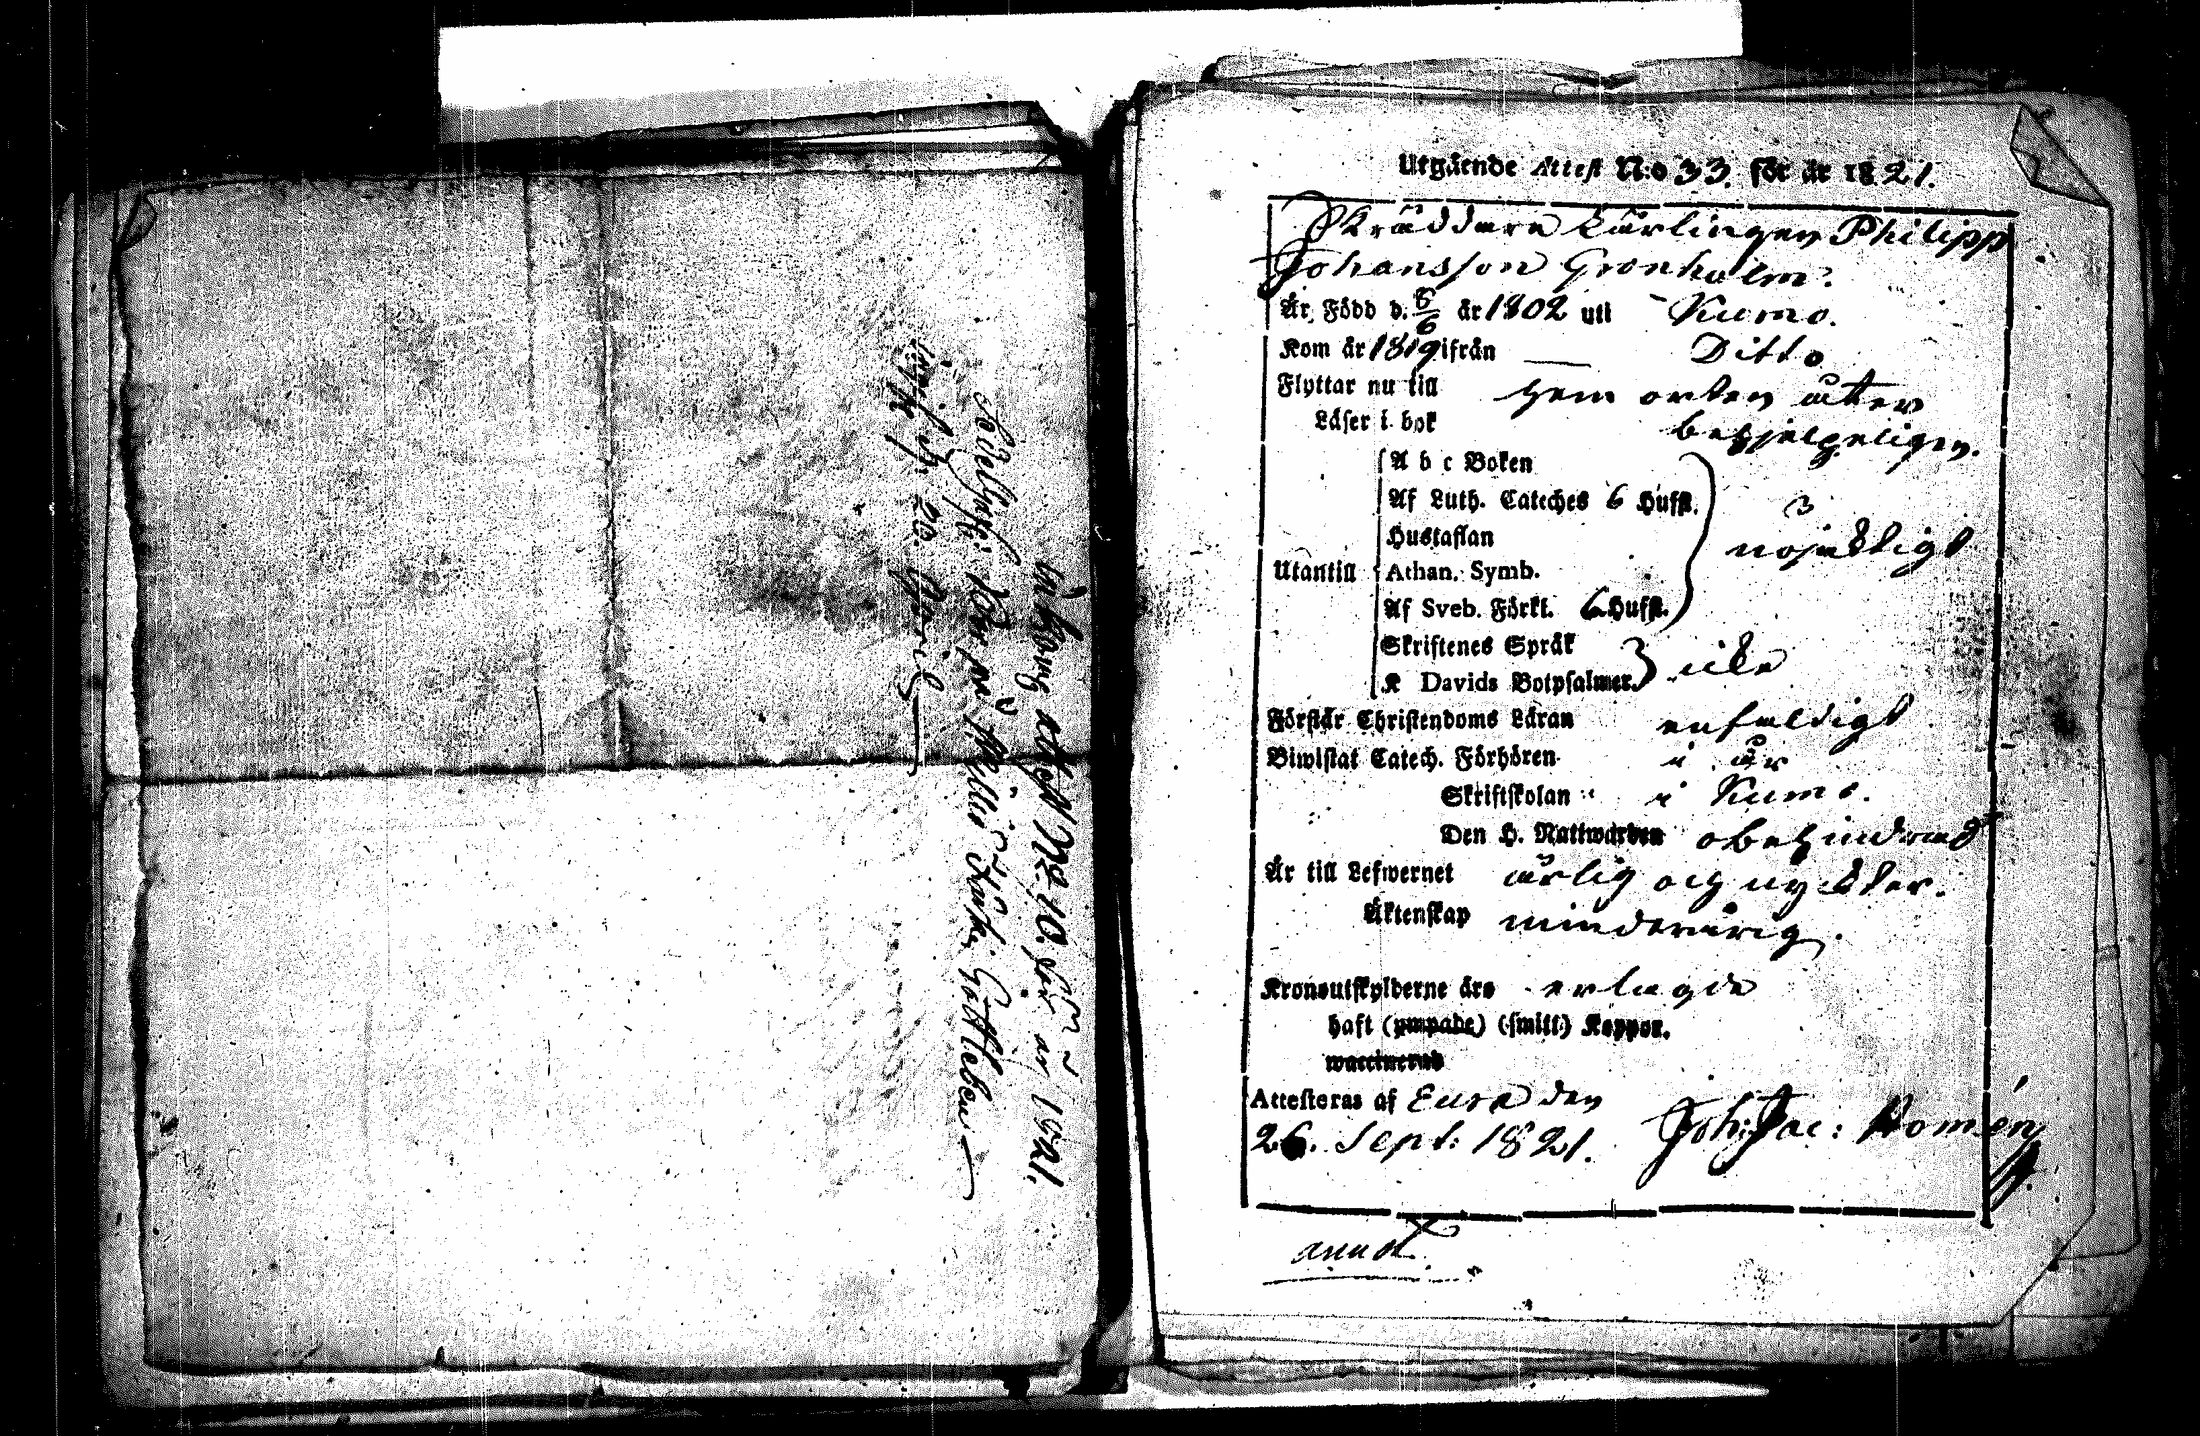 Inkom̃ attest No 10. för år 1821.
på Gottleben
20. April
Utgående Attest N:o 33. för år 1821.
Skräddare Lärlingen Philipp
Johansson Grönholm.
Är Född d. 6/6 år 1802 uti Kumo.
Kom år 1819 ifrån — Ditto
Flyttar nu till hem orten åter
Läser i bok behjelpeligen.
A b c Boken
Af Luth. Cateches 6 Hufst.
Hustaflan
nöjaktigt
Utantill Athan. Symb.
Af Sveb. Förkl. 6 Hufst.
Skriftenes Språk
icke
K Davids Botpsalmer.
Förstår Christendoms Läran enfaldigt
Biwistat Catech. Förhören i år
Skriftskolan i Kumo.
Den H. Nattwarden obehindrad
Är till Lefwernet ärlig och nyckter.
Äktenskap minderårig.
Kronoutskylderne äro erlagde
haft (ympade) (smitt) Koppor.
waccinerad
Attesteras af Eura den
26. Sept: 1821. Joh: Jac: Homén